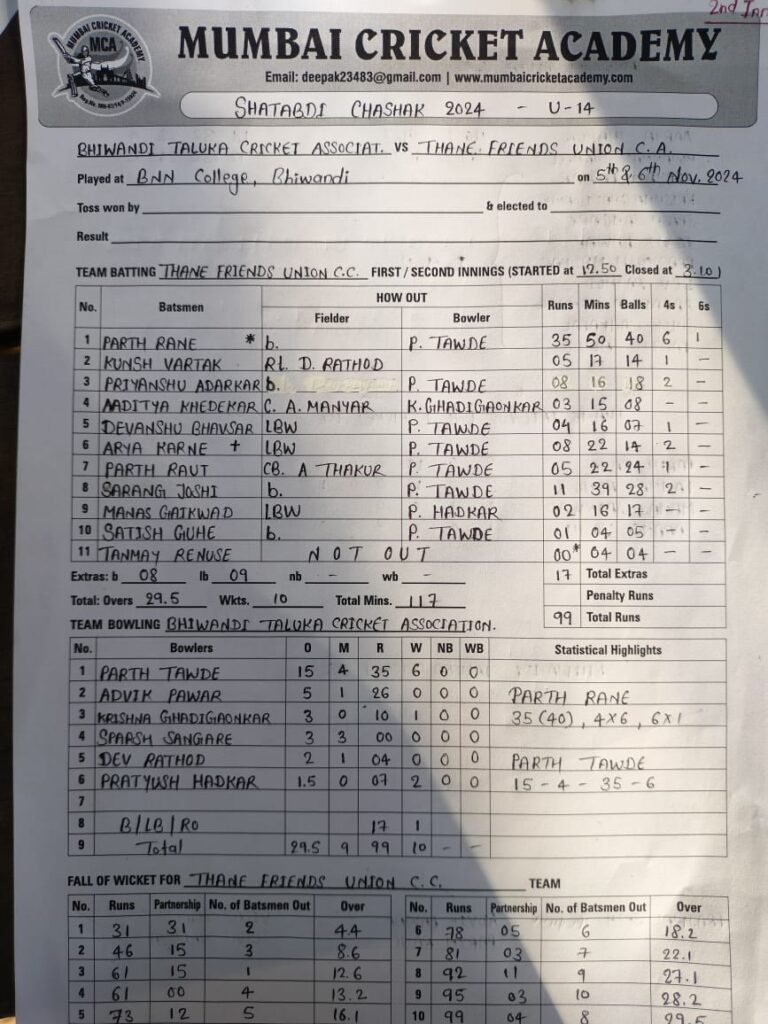 2nd Inn
MUMBAI CRICKET ACADEMY
MCA
MUMBAI CRICKET ACADEMY
Email: deepak23483@gmail.com | www.mumbaicricketacademy.com
SHATABDI CHASHAK 2024 - U-14
BHIWANDI TALUKA CRICKET ASSOCIAT. VS THANE FRIENDS UNION C.A.
Played at BNN College, Bhiwandi on 5th & 6th Nov. 2024
Toss won by & elected to
Result
TEAM BATTING THANE FRIENDS UNION C.C. FIRST / SECOND INNINGS (STARTED at 12.50 Closed at 3.10)
No. Batsmen HOW OUT Runs Mins Balls 4s 6s
Fielder Bowler
1 PARTH RANE * b. P. TAWDE 35 50 40 6 1
2 KUNSH VARTAK Rt. D. RATHOD 05 17 14 1 -
3 PRIYANSHU ADARKAR b. P. TAWDE 08 16 18 2 -
4 AADITYA KHEDEKAR C. A. MANYAR K. GHADIGAONKAR 03 15 08 - -
5 DEVANSHU BHAVSAR LBW P. TAWDE 04 16 07 1 -
6 ARYA KARNE + LBW P. TAWDE 08 22 14 2 -
7 PARTH RAUT CB. A THAKUR P. TAWDE 05 22 24 1 -
8 SARANG JOSHI b. P. TAWDE 11 39 28 2 -
9 MANAS GAIKWAD LBW P. HADKAR 02 16 17 - -
10 SATISH GUHE b. P. TAWDE 01 04 05 - -
11 TANMAY RENUSE NOT OUT 00* 04 04 - -
Extras: b 08 lb 09 nb - wb - 17 Total Extras
Penalty Runs
Total: Overs 29.5 Wkts. 10 Total Mins. 117 99 Total Runs
TEAM BOWLING BHIWANDI TALUKA CRICKET ASSOCIATION.
No. Bowlers O M R W NB WB Statistical Highlights
1 PARTH TAWDE 15 4 35 6 0 0
2 ADVIK PAWAR 5 1 26 0 0 0 PARTH RANE
3 KRISHNA GHADIGAONKAR 3 0 10 1 0 0 35 (40), 4x6, 6x1
4 SPARSH SANGARE 3 3 00 0 0 0
5 DEV RATHOD 2 1 04 0 0 0 PARTH TAWDE
6 PRATYUSH HADKAR 1.5 0 07 2 0 0 15 - 4 - 35 - 6
7
8 B/LB/RO 17 1
9 Total 29.5 9 99 10 - -
FALL OF WICKET FOR THANE FRIENDS UNION C.C. TEAM
No. Runs Partnership No. of Batsmen Out Over No. Runs Partnership No. of Batsmen Out Over
1 31 31 2 4.4 6 78 05 6 18.2
2 46 15 3 8.6 7 81 03 7 22.1
3 61 15 1 12.6 8 92 11 9 27.1
4 61 00 4 13.2 9 95 03 10 28.2
5 73 12 5 16.1 10 99 04 8 29.5